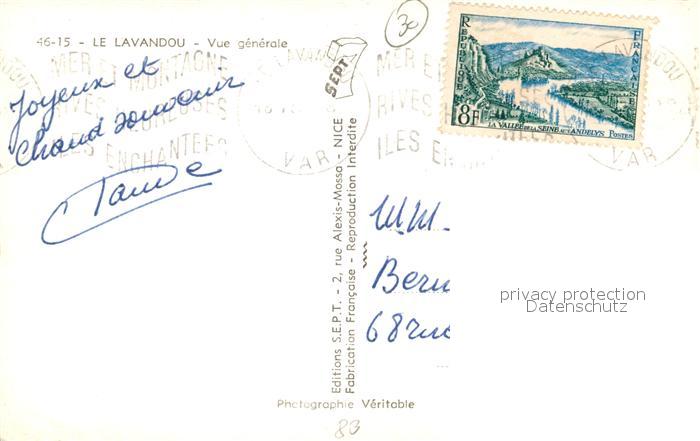 46-15 - LE LAVANDOU - Vue générale
Joyeux et
Chaud souvenir
MER ET MONTAGNE
RIVES HEUREUSES
ILES ENCHANTEES
LAVANDOU
VAR
SEPT
30
REPUBLIQUE FRANÇAISE
8F
LA VALLÉE DE LA SEINE AUX ANDELYS POSTES
MER ET
RIVES
ILES
LAVANDOU
VAR
Editions S.E.P.T. - 2, rue Alexis-Mossa - NICE
Fabrication Française - Reproduction Interdite
MM.
Bern
68 rue
privacy protection
Datenschutz
Photographie Véritable
83